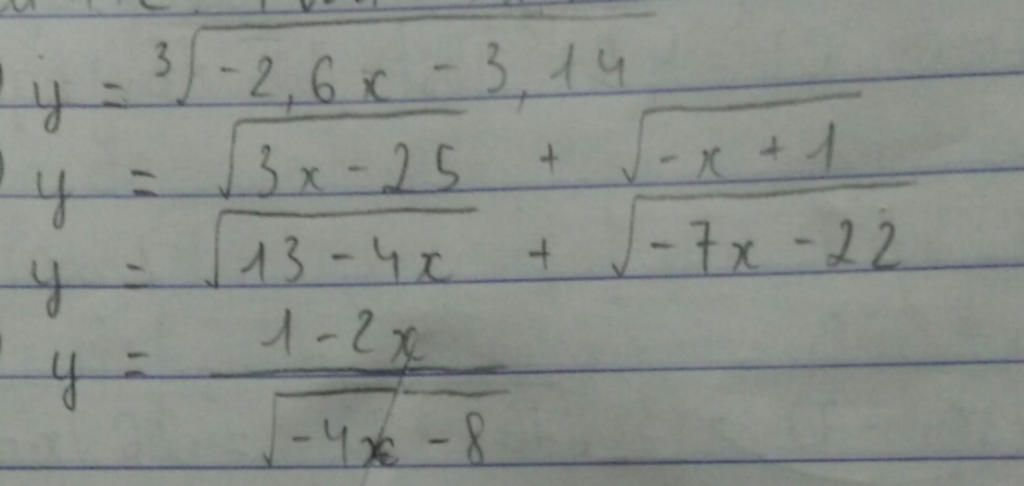 ) y = ∛(-2,6x - 3,14)
) y = √(3x - 25) + √(-x + 1)
y = √(13 - 4x) + √(-7x - 22)
) y = (1 - 2x)/√(-4x - 8)